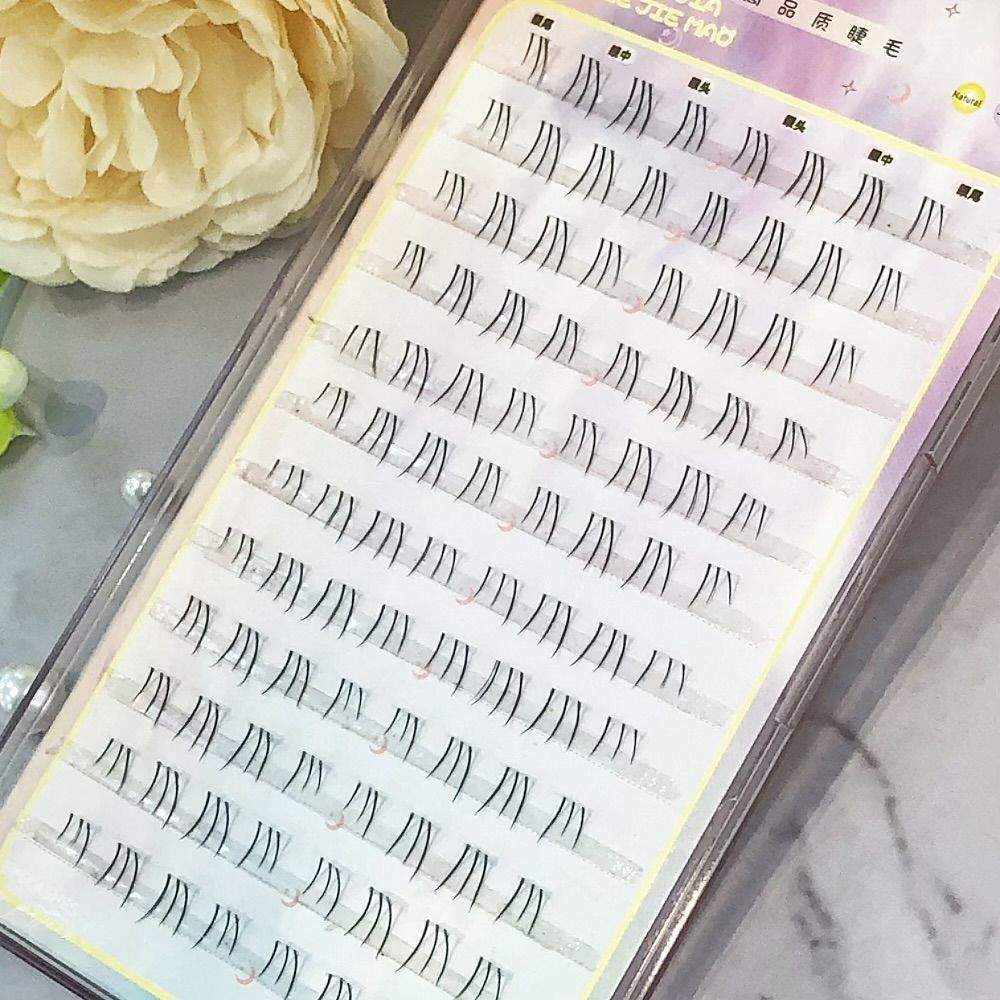 JIE MAO
品质睫毛
Natural
眼尾
眼中
眼头
眼头
眼中
眼尾